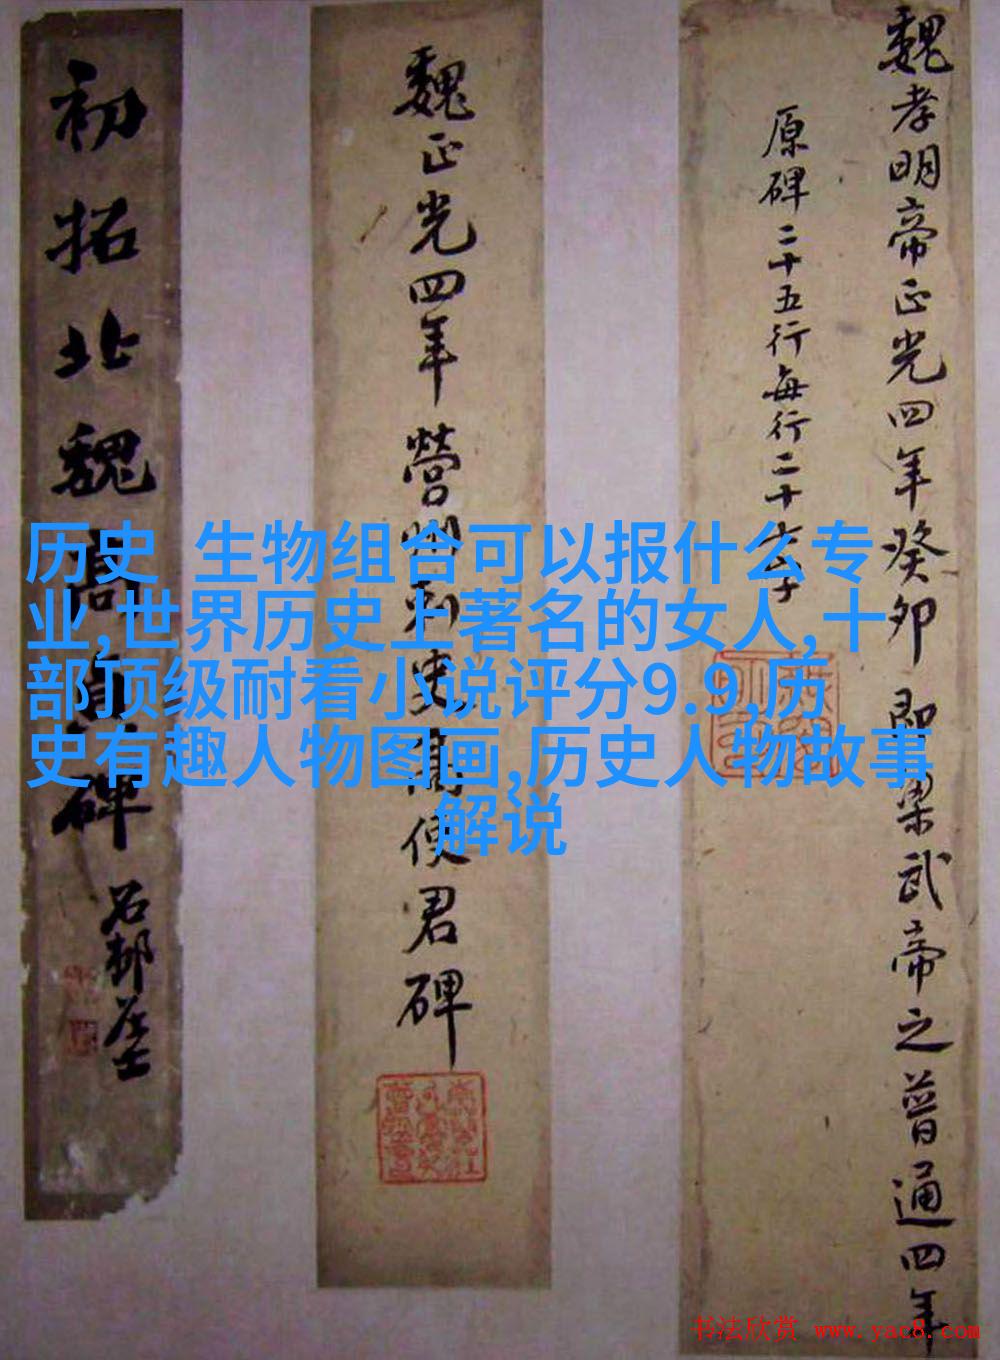 魏孝明帝正光四年癸卯即梁武帝之普通四年
原碑二十五行每行二十七字
魏正光四年營州刺史高使君碑
初拓北魏高貞碑
石邨居士
历史 生物组合可以报什么专
业,世界历史上著名的女人,十
部顶级耐看小说评分9.9,历
史有趣人物图画,历史人物故事
解说
书法欣赏 www.yac8.com